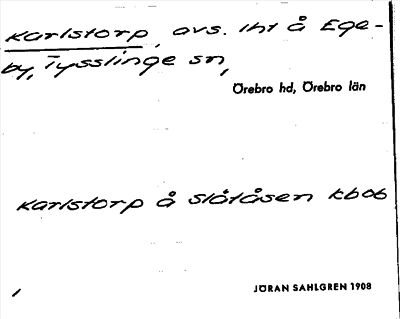 Karlstorp, avs. lht å Ege-
by, Tysslinge sn,
Örebro hd, Örebro län
Karlstorp å Slåtåsen kbob
JÖRAN SAHLGREN 1908